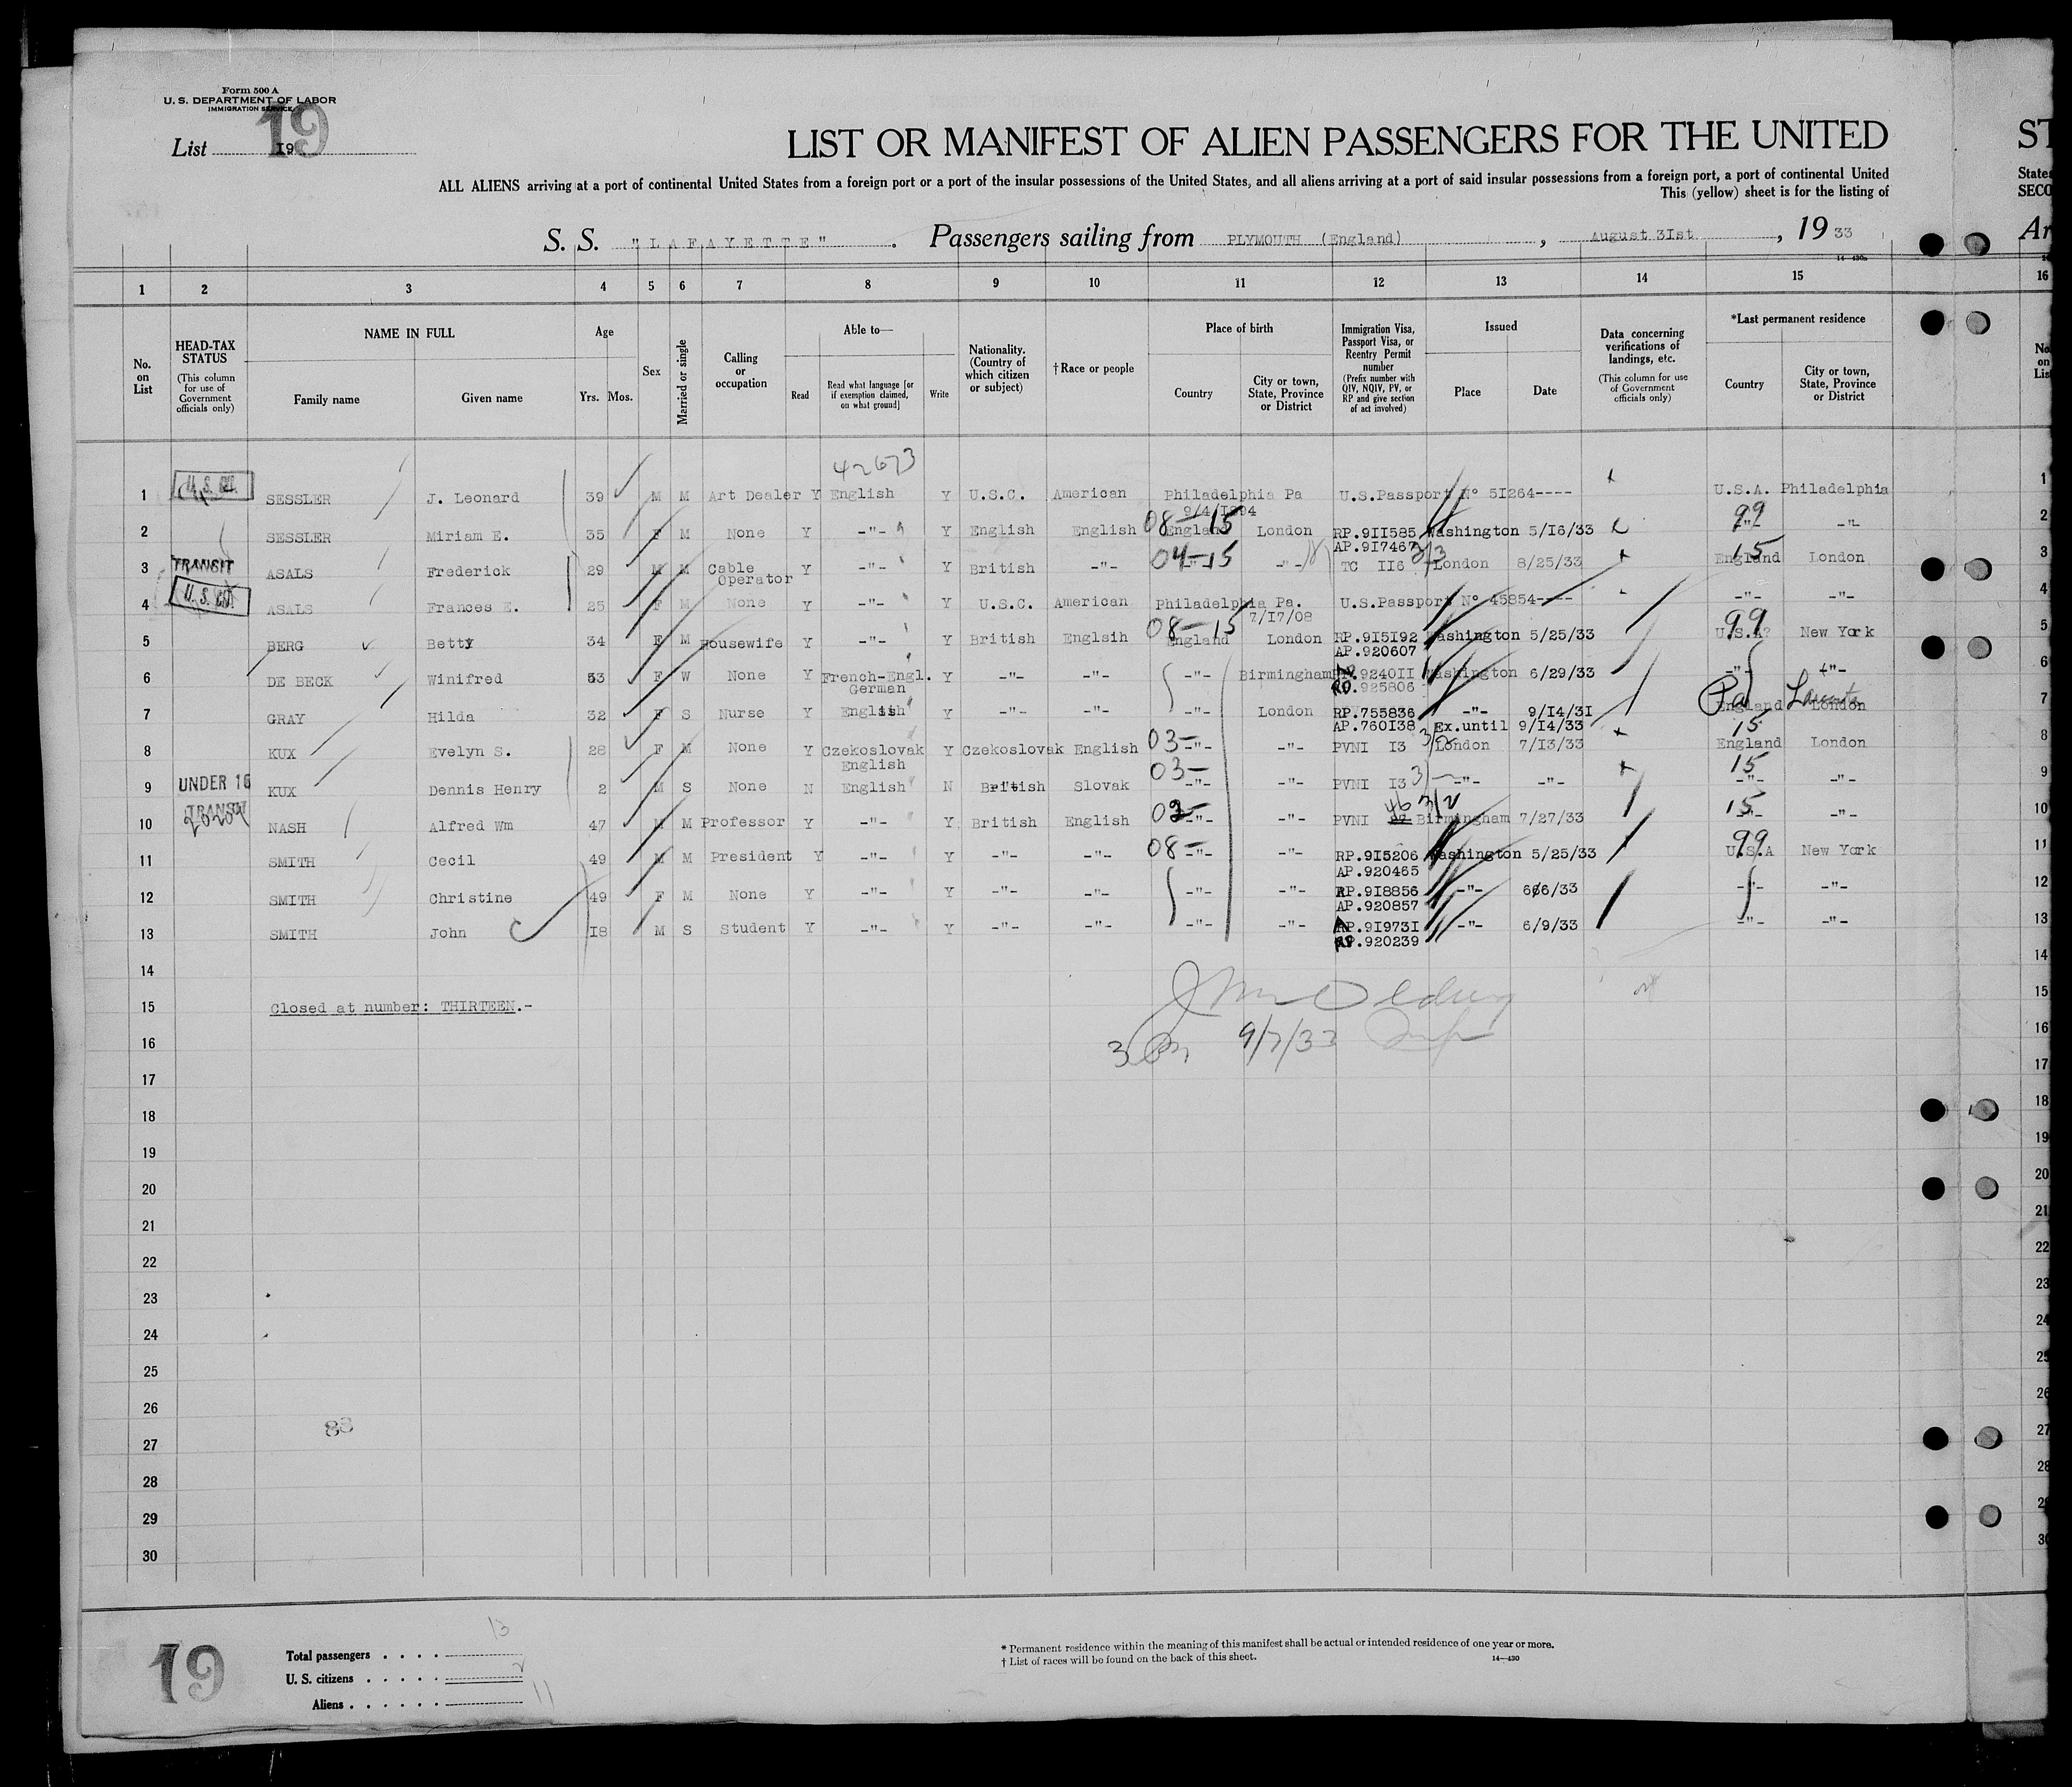 Form 500 A
U. S. DEPARTMENT OF LABOR
IMMIGRATION SERVICE
19
List 19
LIST OR MANIFEST OF ALIEN PASSENGERS FOR THE UNITED
ST
ALL ALIENS arriving at a port of continental United States from a foreign port or a port of the insular possessions of the United States, and all aliens arriving at a port of said insular possessions from a foreign port, a port of continental United
States
This (yellow) sheet is for the listing of
SECO
S. S. "LAFAYETTE". Passengers sailing from PLYMOUTH (England), August 31st, 19 33
Ar
1 2 3 4 5 6 7 8 9 10 11 12 13 14 15 16
No. on List
HEAD-TAX STATUS (This column for use of Government officials only)
NAME IN FULL
Family name Given name
Age
Yrs. Mos.
Sex
Married or single
Calling or occupation
Able to—
Read Read what language [or if exemption claimed, on what ground] Write
Nationality. (Country of which citizen or subject)
†Race or people
Place of birth
Country City or town, State, Province or District
Immigration Visa, Passport Visa, or Reentry Permit number (Prefix number with QIV, NQIV, PV, or RP and give section of act involved)
Issued
Place Date
Data concerning verifications of landings, etc. (This column for use of Government officials only)
*Last permanent residence
Country City or town, State, Province or District
No. on List
42673
1 U.S. CIT. SESSLER J. Leonard 39 M M Art Dealer Y English Y U.S.C. American Philadelphia Pa U.S.Passport N° 51264---- U.S.A. Philadelphia 1
9/4/1894
2 SESSLER Miriam E. 35 F M None Y -"- Y English English 08-15 England London RP.911585 Washington 5/16/33 99 -"- -"- 2
AP.917467
3 TRANSIT ASALS Frederick 29 M M Cable Operator Y -"- Y British -"- 04-15 -"- -"- TC 116 3/3 London 8/25/33 15 England London 3
4 U.S. CIT. ASALS Frances E. 25 F M None Y -"- Y U.S.C. American Philadelphia Pa. U.S.Passport N° 45854---- -"- -"- 4
7/17/08
5 BERG Betty 34 F M Housewife Y -"- Y British Englsih 08-15 England London RP.915192 Washington 5/25/33 99 U.S.A? New York 5
AP.920607
6 DE BECK Winifred 53 F W None Y French-Engl. German Y -"- -"- -"- Birmingham 924011 Washington 6/29/33 -"- -"- 6
925806
7 GRAY Hilda 32 F S Nurse Y English Y -"- -"- -"- London RP.755836 -"- 9/14/31 Pa England London 7
AP.760138 Ex.until 9/14/33
8 KUX Evelyn S. 28 F M None Y Czekoslovak English Y Czekoslovak English 03- -"- -"- PVNI 13 3/2 London 7/13/33 15 England London 8
9 UNDER 16 KUX Dennis Henry 2 M S None N English N British Slovak 03- -"- -"- PVNI 13 -"- -"- 15 -"- -"- 9
10 TRANSIT NASH Alfred Wm 47 M M Professor Y -"- Y British English 02- -"- -"- PVNI 46 3/2 Birmingham 7/27/33 15 -"- -"- 10
11 SMITH Cecil 49 M M President Y -"- Y -"- -"- 08- -"- -"- RP.915206 Washington 5/25/33 99 U.S.A New York 11
AP.920465
12 SMITH Christine 49 F M None Y -"- Y -"- -"- -"- -"- RP.918856 -"- 6/6/33 -"- -"- 12
AP.920857
13 SMITH John 18 M S Student Y -"- Y -"- -"- -"- -"- 919731 -"- 6/9/33 -"- -"- 13
920239
14 14
15 Closed at number: THIRTEEN.- 15
16 9/7/33 16
17 17
18 18
19 19
20 20
21 21
22 22
23 23
24 24
25 25
26 26
27 27
28 28
29 29
30 30
19
Total passengers . . . . 13
U. S. citizens . . . . . 2
Aliens . . . . . . 11
* Permanent residence within the meaning of this manifest shall be actual or intended residence of one year or more.
† List of races will be found on the back of this sheet. 14—430